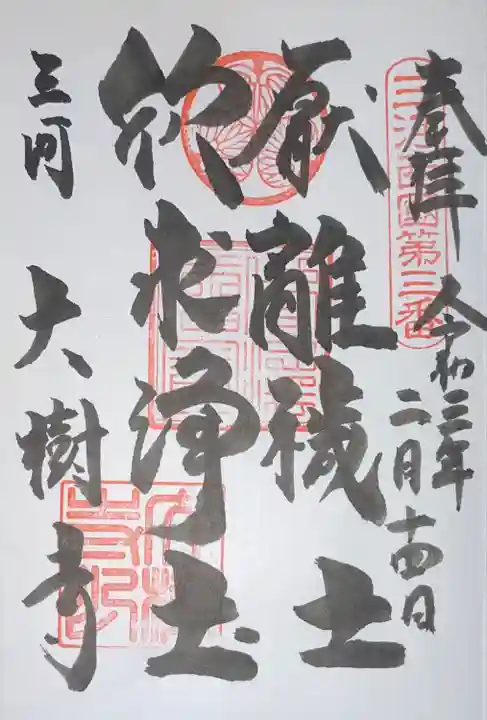 奉拝
三河西国第三番
令和三年
二月十四日
厭離穢土
欣求浄土
三河
大樹寺